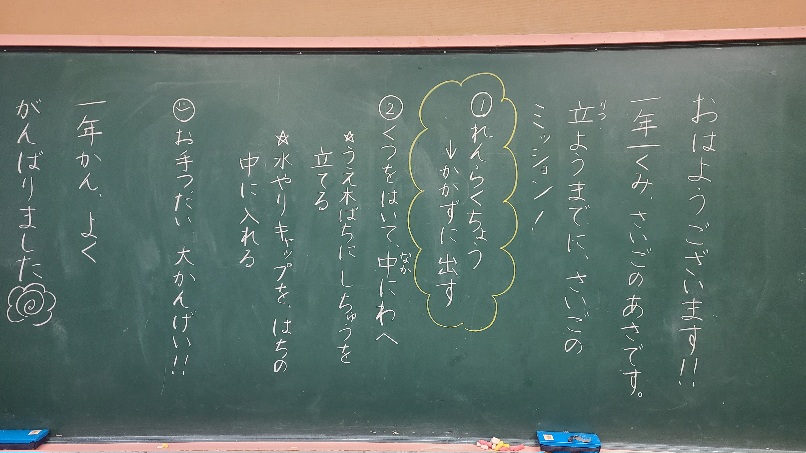 おはようございます!!
一年一くみ、さいごのあさです。
立ようまでに、さいごの
りつ
ミッション!
①れんらくちょう
↓かかずに出す
②くつをはいて、中にわへ
なか
☆うえ木ばちにしちゅうを
立てる
☆水やりキャップを、はちの
中に入れる
お手つだい 大かんげい!!
一年かん、よく
がんばりました